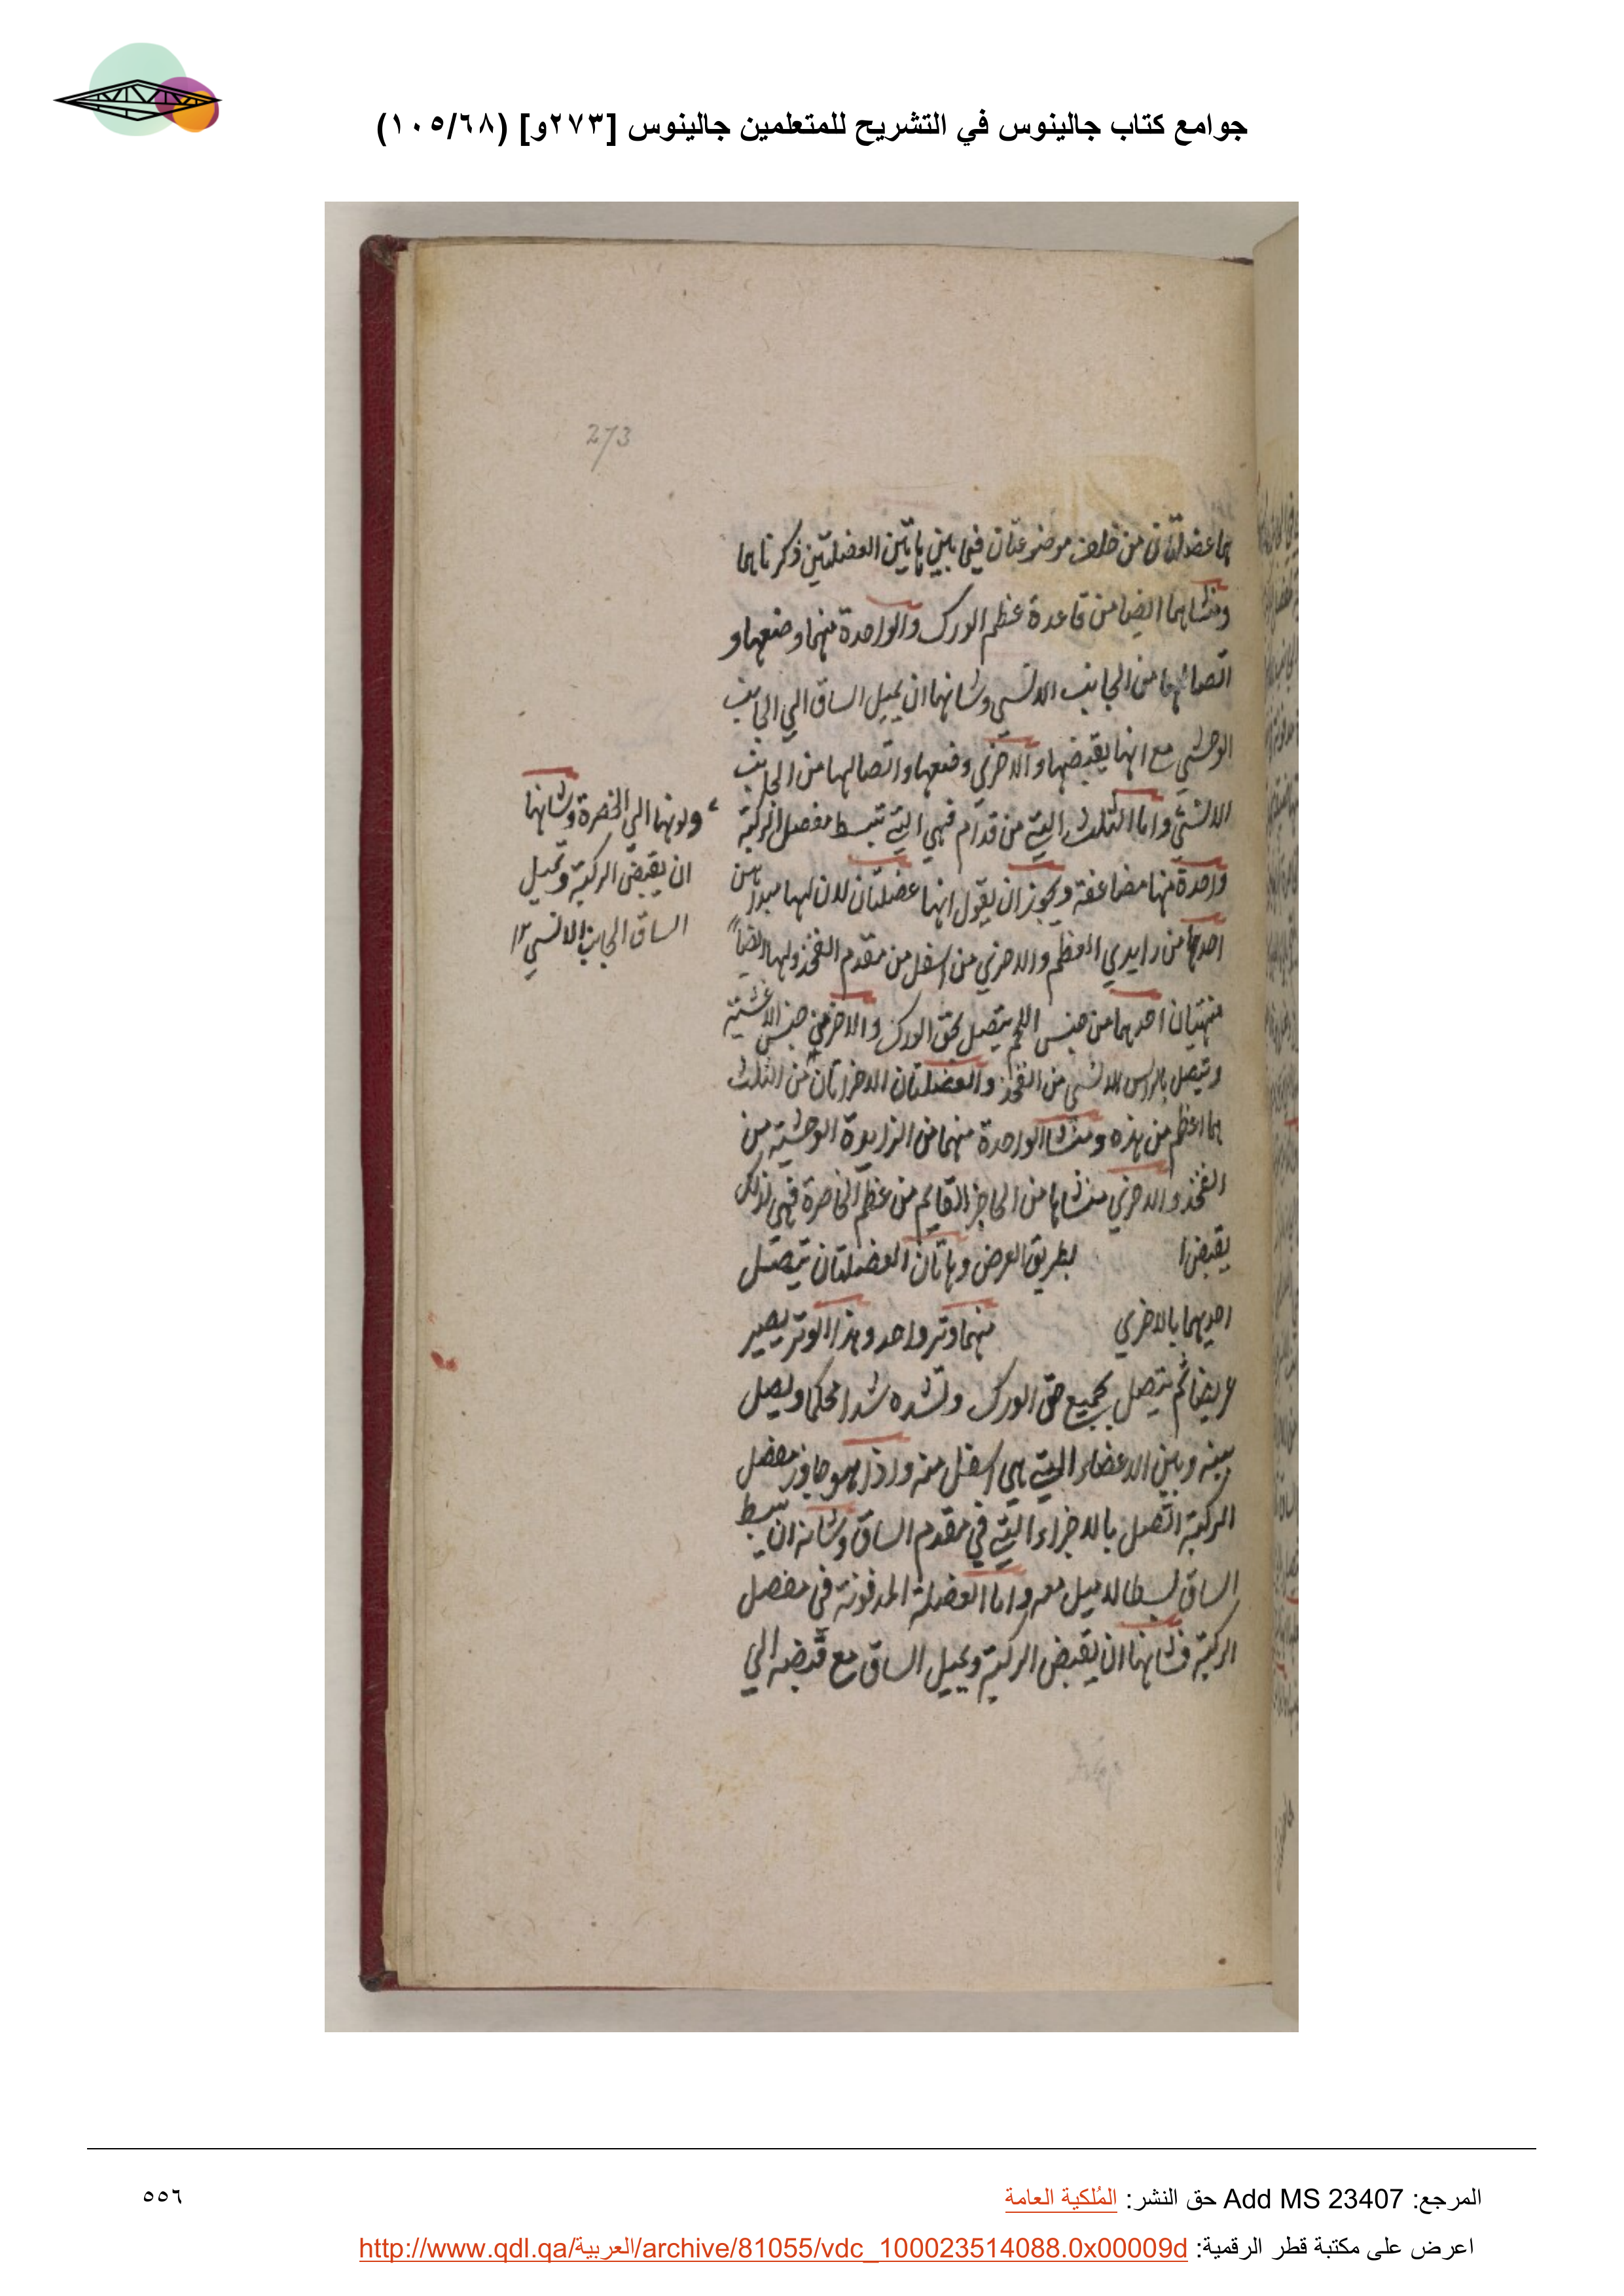 جوامع كتاب جالينوس في التشريح للمتعلمين جالينوس [٢٧٣و] (١٠٥/٦٨)
273
هما عضلتان من خلف موضوعتان فيما بين هاتين العضلتين ذكرناهما
ومنشاهما ايضا من قاعدة عظم الورك والواحدة منهما وضعها و
اتصالها من الجانب الانسي وشانها ان يميل الساق الي الجانب
الوحشي مع انها يقبضها والاخري وضعها واتصالها من الجانب
الانسي واما الثلث التي من قدام فهي التي تبسط مفصل الركبة
واحدة منها مضاعفة ويجوز ان يقول انها عضلتان لان لها مبداين
احدهما من زايدي العظم والاخري من اسفل من مقدم الفخذ ولها ايضاً
منتهيان احدهما من جنس اللحم يتصل بحق الورك والاخر من جنس الاغشية
وتتصل بالراس الانسي من الفخذ والعضلتان الاخرتان من الثلث
هما اعظم من هذه ومنشا الواحدة منهما من الزايدة الوحشية من
الفخذ والاخري منشاها من الحاجز القايم من عظم الخاصرة فهي لذلك
يقبض ا بطريق العرض وهاتان العضلتان تتصل
احديهما بالاخري منهما وتر واحد وهذا الوتر يصير
عريضا ثم يتصل بجميع حق الورك وتشده شدا محكما ويصل
بينه وبين الاعضاء التي هي اسفل منه واذا هو جاوز مفصل
الركبة اتصل بالاجزاء التي في مقدم الساق وشانه ان يبسط
الساق بسطا لا ميل معه واما العضلة المدفونة في مفصل
الركبة فشانها ان يقبض الركبة ويميل الساق مع قبضه الي
ولونها الي الخضرة وشانها
ان يقبض الركبة وتميل
الساق الجانب الانسي ١٢
المرجع: Add MS 23407 حق النشر: المُلكية العامة
٥٥٦
اعرض على مكتبة قطر الرقمية: http://www.qdl.qa/العربية/archive/81055/vdc_100023514088.0x00009d